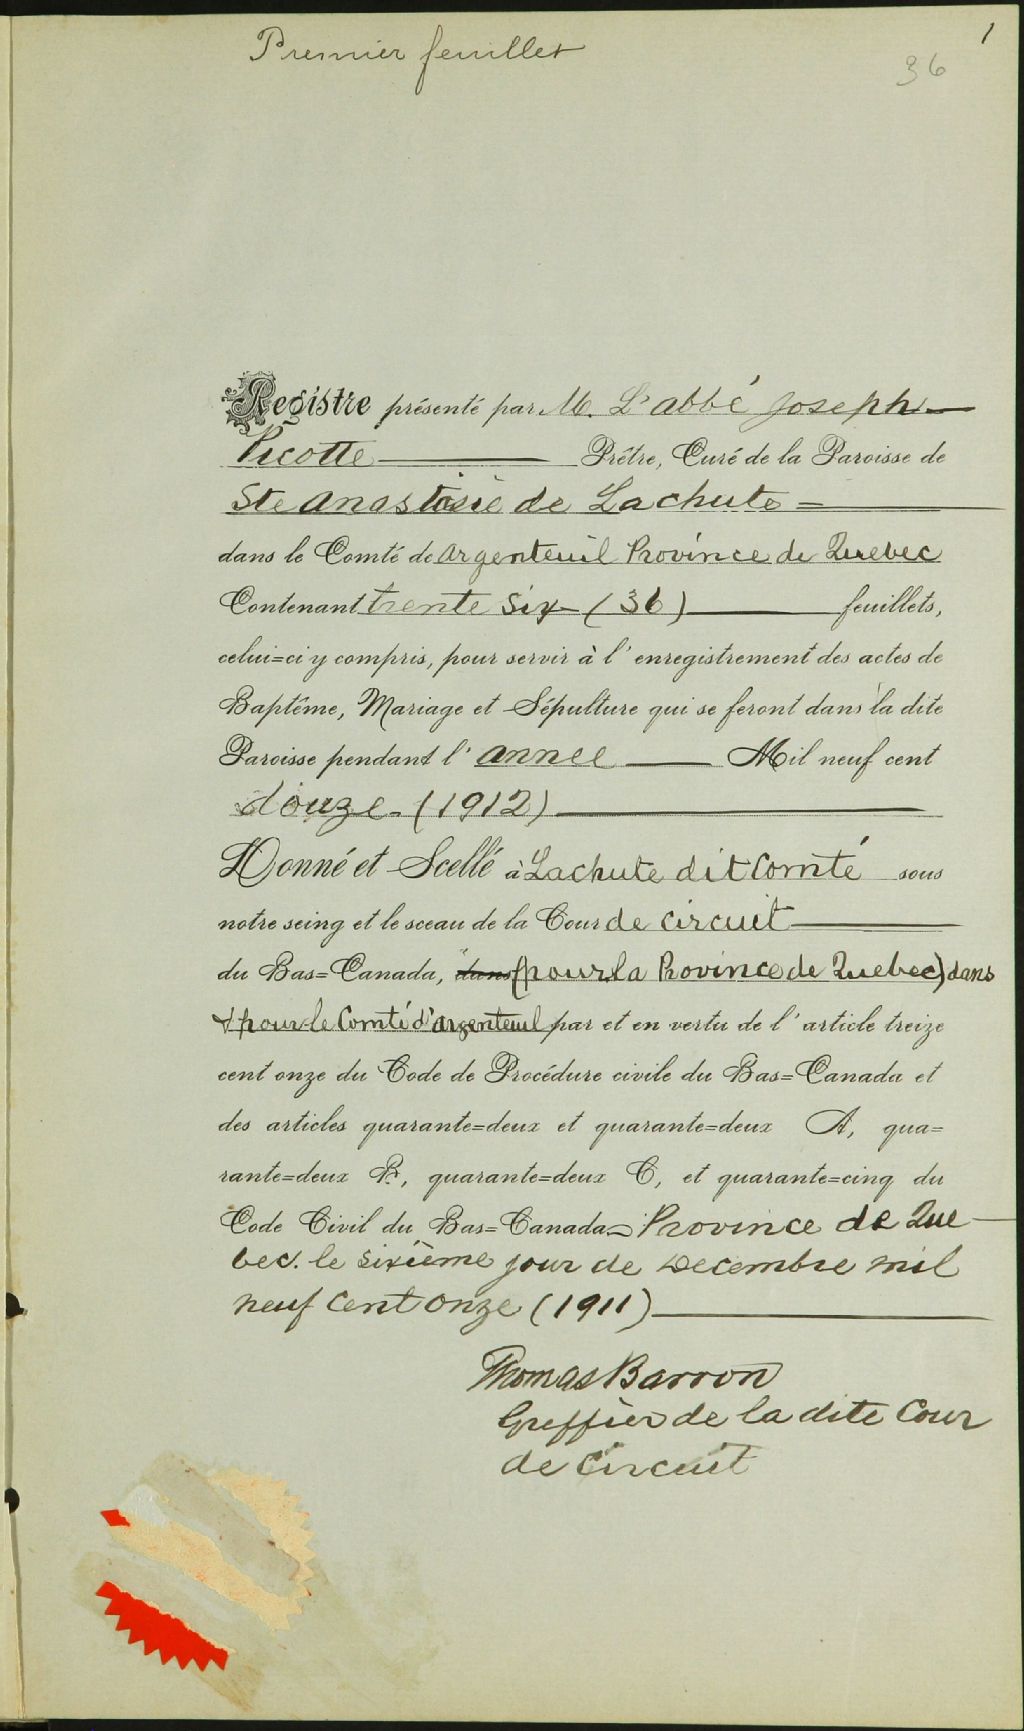 Premier feuillet
1
36
Registre présenté par M. L'abbé Joseph
Picotte Prêtre, Curé de la Paroisse de
Ste Anastasie de Lachute =
dans le Comté de Argenteuil Province de Quebec
Contenant trente Six (36) feuillets,
celui=ci y compris, pour servir à l'enregistrement des actes de
Baptême, Mariage et Sépulture qui se feront dans la dite
Paroisse pendant l'annee Mil neuf cent
douze - (1912)
Donné et Scellé à Lachute dit Comté sous
notre seing et le sceau de la Cour de circuit
du Bas=Canada, dans (pour la Province de Quebec) dans
& pour le Comté d'Argenteuil par et en vertu de l'article treize
cent onze du Code de Procédure civile du Bas=Canada et
des articles quarante=deux et quarante=deux A, qua=
rante=deux B, quarante=deux C, et quarante=cinq du
Code Civil du Bas=Canada Province de Que
bec. le sixième jour de Decembre mil
neuf Cent onze (1911)
Thomas Barron
Greffier de la dite Cour
de Circuit